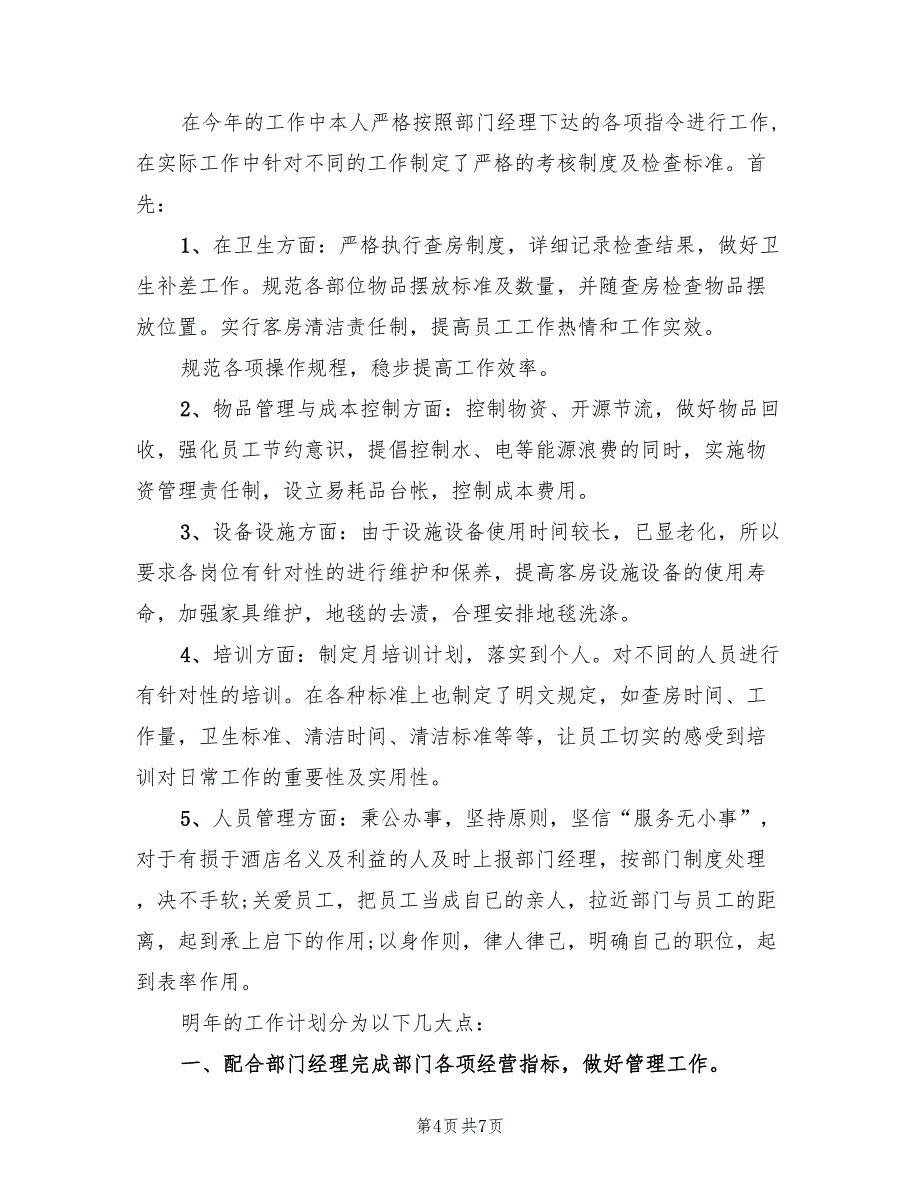 在今年的工作中本人严格按照部门经理下达的各项指令进行工作,
在实际工作中针对不同的工作制定了严格的考核制度及检查标准。首
先：
1、在卫生方面：严格执行查房制度，详细记录检查结果，做好卫
生补差工作。规范各部位物品摆放标准及数量，并随查房检查物品摆
放位置。实行客房清洁责任制，提高员工工作热情和工作实效。
规范各项操作规程，稳步提高工作效率。
2、物品管理与成本控制方面：控制物资、开源节流，做好物品回
收，强化员工节约意识，提倡控制水、电等能源浪费的同时，实施物
资管理责任制，设立易耗品台帐，控制成本费用。
3、设备设施方面：由于设施设备使用时间较长，已显老化，所以
要求各岗位有针对性的进行维护和保养，提高客房设施设备的使用寿
命，加强家具维护，地毯的去渍，合理安排地毯洗涤。
4、培训方面：制定月培训计划，落实到个人。对不同的人员进行
有针对性的培训。在各种标准上也制定了明文规定，如查房时间、工
作量，卫生标准、清洁时间、清洁标准等等，让员工切实的感受到培
训对日常工作的重要性及实用性。
5、人员管理方面：秉公办事，坚持原则，坚信“服务无小事”，
对于有损于酒店名义及利益的人及时上报部门经理，按部门制度处理
，决不手软;关爱员工，把员工当成自已的亲人，拉近部门与员工的距
离，起到承上启下的作用;以身作则，律人律己，明确自己的职位，起
到表率作用。
明年的工作计划分为以下几大点：
一、配合部门经理完成部门各项经营指标，做好管理工作。
第4页共7页